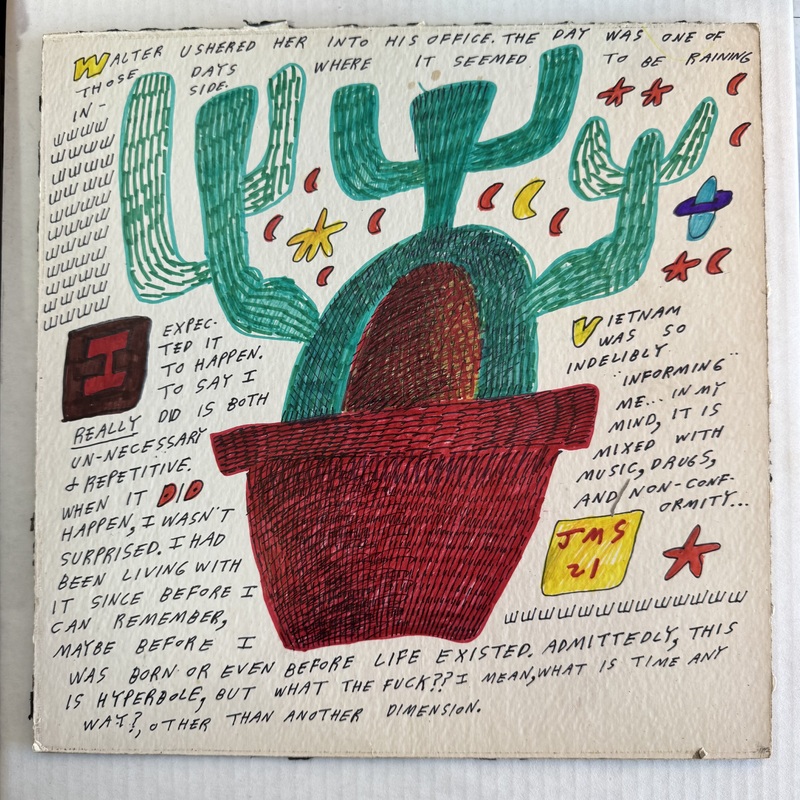 WALTER USHERED HER INTO HIS OFFICE. THE DAY WAS ONE OF
THOSE DAYS WHERE IT SEEMED TO BE RAINING
IN-SIDE.
I EXPEC-
TED IT
TO HAPPEN.
TO SAY I
REALLY DID IS BOTH
UN-NECESSARY
& REPETITIVE.
WHEN IT DID
HAPPEN, I WASN'T
SURPRISED. I HAD
BEEN LIVING WITH
IT SINCE BEFORE I
CAN REMEMBER,
MAYBE BEFORE I
WAS BORN OR EVEN BEFORE LIFE EXISTED. ADMITTEDLY, THIS
IS HYPERBOLE, BUT WHAT THE FUCK?? I MEAN, WHAT IS TIME ANY
WAY?, OTHER THAN ANOTHER DIMENSION.
VIETNAM
WAS SO
INDELIBLY
"INFORMING"
ME... IN MY
MIND, IT IS
MIXED WITH
MUSIC, DRUGS,
AND/NON-CONF-
ORMITY...
JMS
21